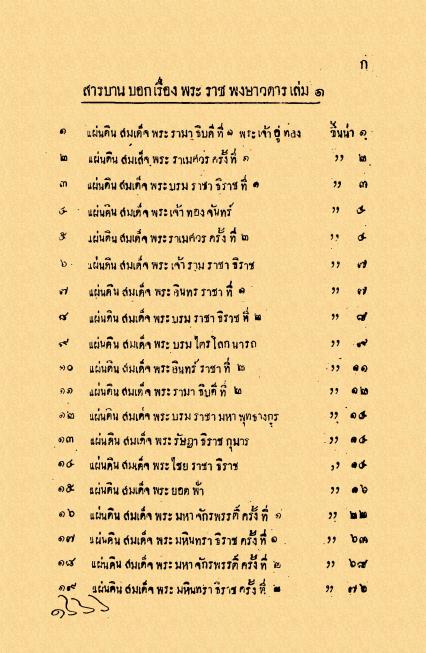 ก
สารบาน บอกเรื่อง พระ ราช พงษาวดาร เล่ม ๑
๑ แผ่นดิน สมเด็จ พระ รามา ธิบดี ที่ ๑ พระ เจ้า อู่ ทอง ขึ้นน่า ๑
๒ แผ่นดิน สมเด็จ พระ ราเมศวร ครั้ง ที่ ๑ ,, ๒
๓ แผ่นดิน สมเด็จ พระ บรม ราชา ธิราช ที่ ๑ ,, ๓
๔ แผ่นดิน สมเด็จ พระ เจ้า ทอง จันทร์ ,, ๔
๕ แผ่นดิน สมเด็จ พระ ราเมศวร ครั้ง ที่ ๒ ,, ๔
๖ แผ่นดิน สมเด็จ พระ เจ้า ราม ราชา ธิราช ,, ๗
๗ แผ่นดิน สมเด็จ พระ อินทร ราชา ที่ ๑ ,, ๗
๘ แผ่นดิน สมเด็จ พระ บรม ราชา ธิราช ที่ ๒ ,, ๘
๙ แผ่นดิน สมเด็จ พระ บรม ไตร โลก นารถ ,, ๙
๑๐ แผ่นดิน สมเด็จ พระ อินทร์ ราชา ที่ ๒ ,, ๑๑
๑๑ แผ่นดิน สมเด็จ พระ รามา ธิบดี ที่ ๒ ,, ๑๒
๑๒ แผ่นดิน สมเด็จ พระ บรม ราชา มหา พุทธางกูร ,, ๑๔
๑๓ แผ่นดิน สมเด็จ พระ รัษฎา ธิราช กุมาร ,, ๑๔
๑๔ แผ่นดิน สมเด็จ พระ ไชย ราชา ธิราช ,, ๑๔
๑๕ แผ่นดิน สมเด็จ พระ ยอด ฟ้า ,, ๑๖
๑๖ แผ่นดิน สมเด็จ พระ มหา จักรพรรดิ์ ครั้ง ที่ ๑ ,, ๒๒
๑๗ แผ่นดิน สมเด็จ พระ มหินทรา ธิราช ครั้ง ที่ ๑ ,, ๖๓
๑๘ แผ่นดิน สมเด็จ พระ มหา จักรพรรดิ์ ครั้ง ที่ ๒ ,, ๖๘
๑๙ แผ่นดิน สมเด็จ พระ มหินทรา ธิราช ครั้ง ที่ ๒ ,, ๗๖